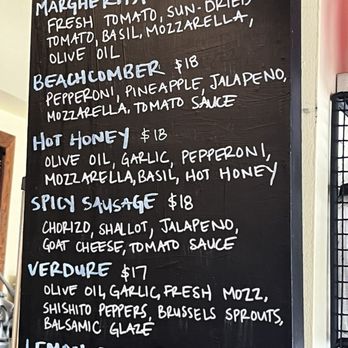 MARGHERITA
FRESH TOMATO, SUN-DRIED
TOMATO, BASIL, MOZZARELLA,
OLIVE OIL
BEACHCOMBER $18
PEPPERONI, PINEAPPLE, JALAPENO,
MOZZARELLA, TOMATO SAUCE
HOT HONEY $18
OLIVE OIL, GARLIC, PEPPERONI,
MOZZARELLA, BASIL, HOT HONEY
SPICY SAUSAGE $18
CHORIZO, SHALLOT, JALAPENO,
GOAT CHEESE, TOMATO SAUCE
VERDURE $17
OLIVE OIL, GARLIC, FRESH MOZZ,
SHISHITO PEPPERS, BRUSSELS SPROUTS,
BALSAMIC GLAZE